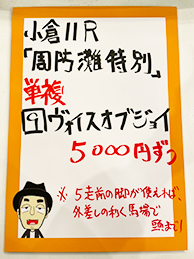 小倉11R
「周防灘特別」
単複
⑨ヴォイスオブジョイ
5000円ずつ
※5走前の脚が使えれば、
外差しのわく馬場で
頭まで!